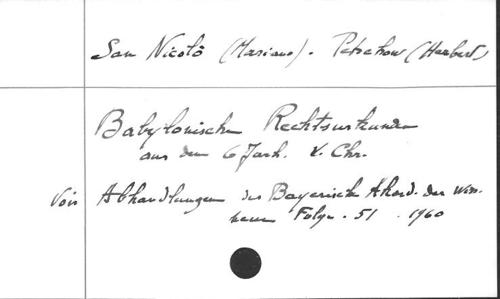 San Nicolò (Mariano). Petschow (Herbert)
Babylonische Rechtsurkunden
aus dem 6 Jarh. v. Chr.
Voir Abhandlungen der Bayerisch Akad. der Wiss.
neue Folge. 51. 1960